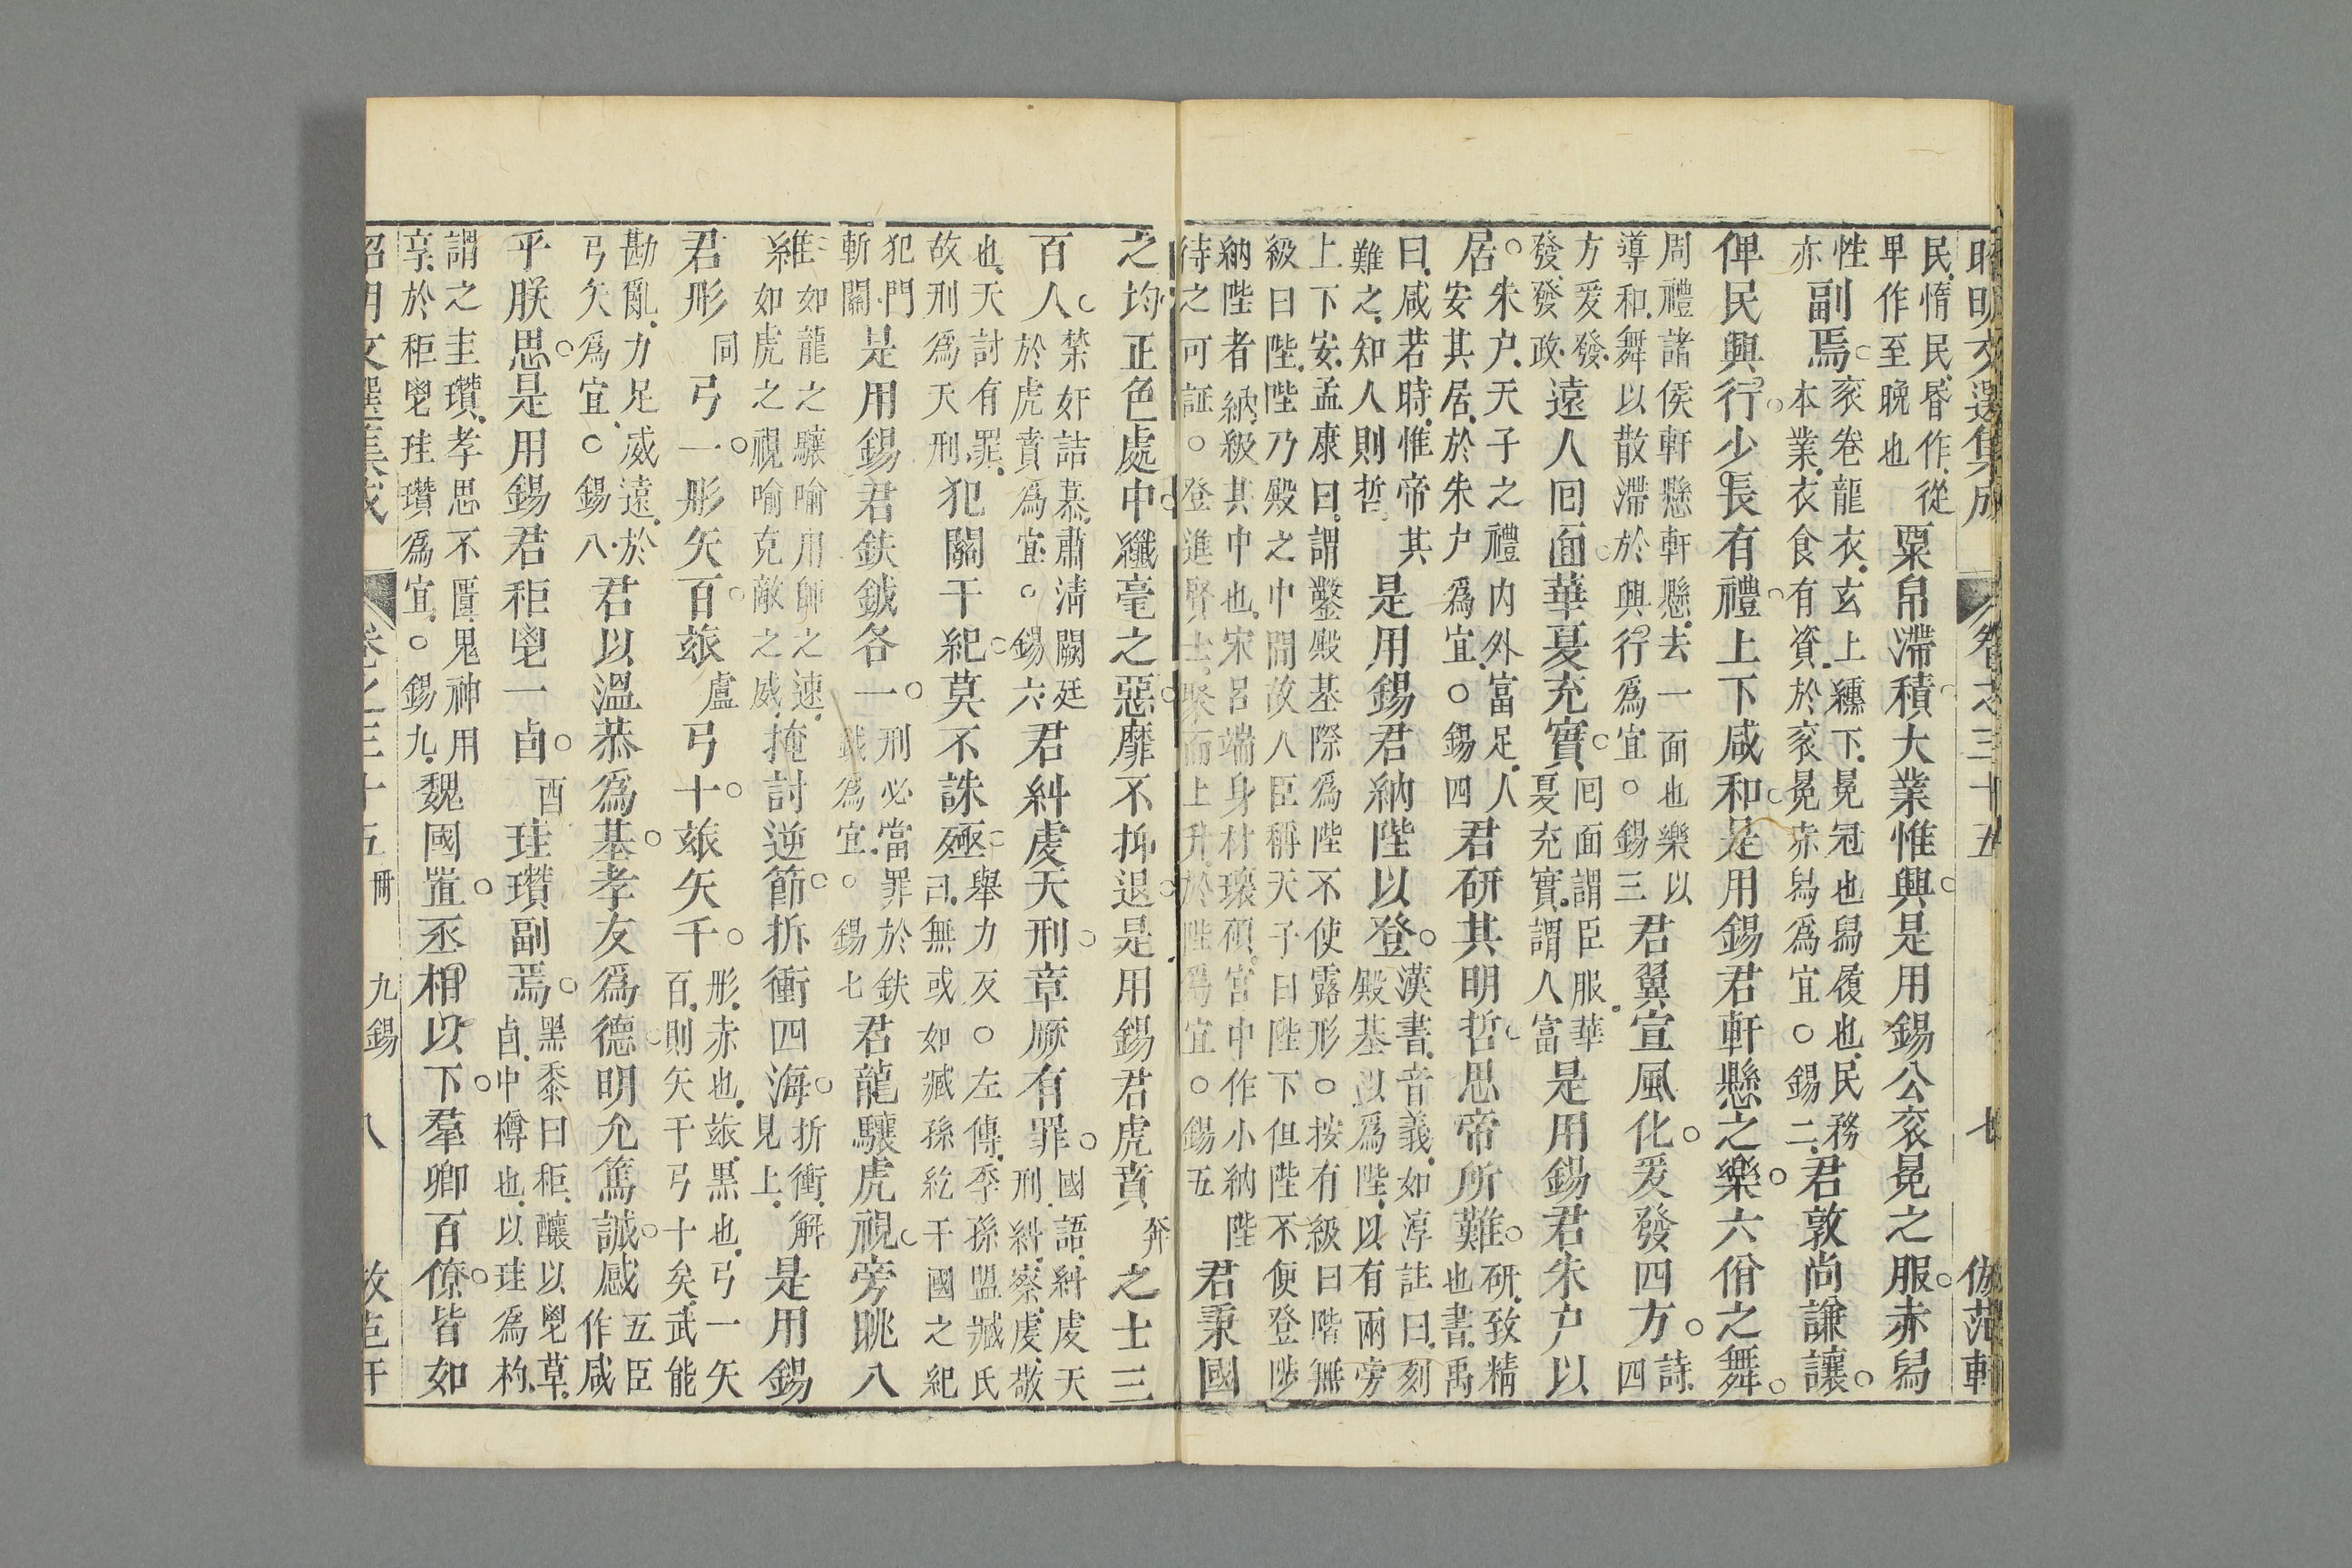 昭明文選集成 卷之三十五 七 倣范軒
民惰民昬作從卑作至晚也粟帛滯積大業惟興是用錫公衮冕之服赤舄
性亦副焉衮卷龍衣玄上纁下冕冠也舄履也民務本業衣食有資於衮冕赤舄為宜○錫二君敦尚謙讓
俾民興行少長有禮上下咸和是用錫君軒懸之樂六佾之舞
周禮諸侯軒懸軒懸去一面也樂以導和舞以散滯於興行為宜○錫三君翼宣風化爰發四方詩四
方爰發發發政遠人囘面華夏充實囘面謂臣服華夏充實謂人富是用錫君朱户以
居朱户天子之禮內外富足人安其居於朱户為宜○錫四君研其明哲思帝所難研致精也書禹
曰咸若時惟帝其難之知人則哲是用錫君納陛以登漢書音義如淳註曰刻殿基以為陛以有兩旁
上下安孟康曰謂鑿殿基際為陛不使露形○按有級曰階無級曰陛陛乃殿之中中間故人臣稱天子曰陛下但陛不便登陟
納陛者納級其中也宋呂端身材瓌碩宮中作小納陛待之可証○登進賢士聚而上升於陛為宜○錫五君秉國
之均正色處中纖毫之惡靡不抑退是用錫君虎賁奔之士三
百人禁奸詰慕肅淸闕廷於虎賁為宜○錫六君糾虔天刑章厥有罪國語糾虔天刑糾察虔敬
也天討有罪故刑為天刑犯關干紀莫不誅殛舉力反○左傳季孫盟臧氏無或如臧孫紇干國之紀
犯門斬關是用錫君鈇鉞各一刑必當罪於鈇鉞為宜○錫七君龍驤虎視旁眺八
維如龍之驤喻用師之速如虎之視喻克敵之威掩討逆節折衝四海折衝解見上是用錫
君彤同弓一彤矢百玈盧弓十玈矢千彤赤也玈黑也弓一矢百則矢千弓十矣武能
勘亂力足威遠於弓矢為宜○錫八君以溫恭為基孝友為德明允篤誠感五臣作咸
乎朕思是用錫君秬鬯一卣酉珪瓚副焉黑黍曰秬釀以鬯草卣中樽也以珪為杓
謂之圭瓚孝思不匱鬼神用享於秬鬯珪瓚為宜○錫九魏國置丞相以下羣卿百僚皆如
昭明文選集成 卷之三十五 冊 九錫 八 倣范軒